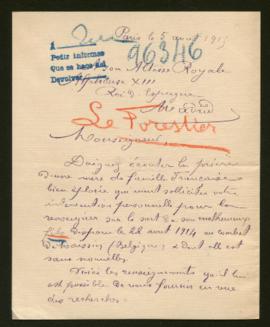 Paris le 5 août 1915
A
Pedir informes
Que se hace así
Devolver
96346
son Altesse Royale
Alphonse XIII
Roi d'Espagne
Madrid
Le Forestier
Monseigneur,
Daignez écouter la prière
d'une mère de famille française
bien éplorée qui vient solliciter votre
intervention personnelle pour la
renseigner sur le sort de son malheureux
fils disparu le 22 août 1914 au combat
de (Belgique) & dont elle est
sans nouvelles.
Voici les renseignements qu'il lui est
possible de vous fournir en vue
des recherches.